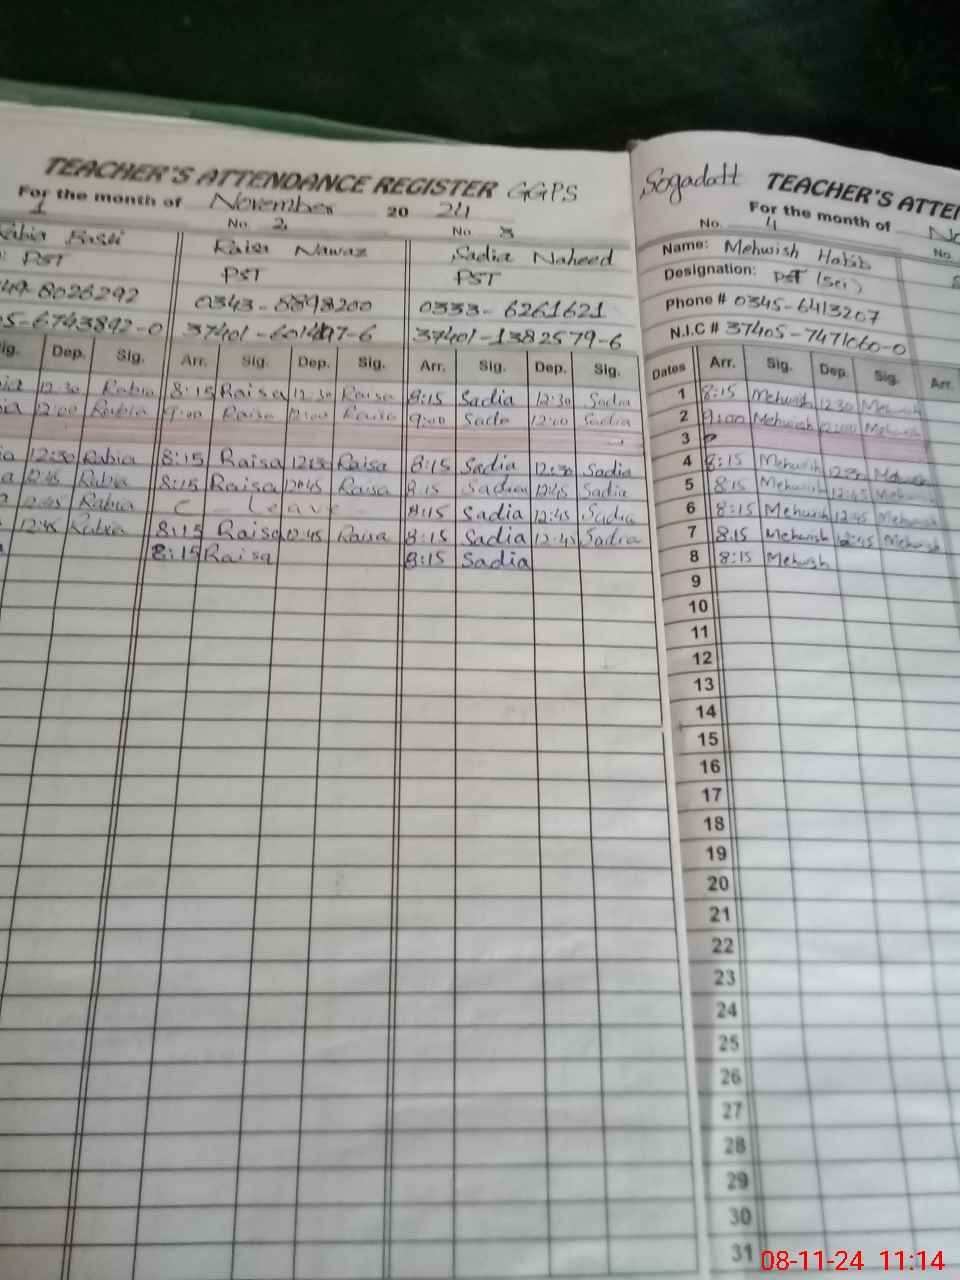 TEACHER'S ATTENDANCE REGISTER GGPS
For the month of November 20 24
1 No. 2 No. 3
Raisa Nawaz Sadia Naheed
: PST PST PST
8026292 0343-8898200 0333-6261621
-6743892-0 37401- -6 37401-1382579-6
ig. Dep. Sig. Arr. Sig. Dep. Sig. Arr. Sig. Dep. Sig.
12:30 Rabia 8:15 Raisa 12:30 Raisa 8:15 Sadia 12:30 Sadia
12:00 Rabia 9:00 Raisa 12:00 Raisa 9:00 Sadia 12:00 Sadia
12:30 Rabia 8:15 Raisa 12:30 Raisa 8:15 Sadia 12:30 Sadia
12:45 Rabia 8:15 Raisa 12:45 Raisa 8:15 Sadia 12:45 Sadia
12:45 Rabia C - Leave - 8:15 Sadia 12:45 Sadia
12:45 Rabia 8:15 Raisa 12:45 Raisa 8:15 Sadia 12:45 Sadia
8:15 Raisa 8:15 Sadia
Sogadatt TEACHER'S ATTEN
For the month of No
No. 4 No.
Name: Mehwish Habib
Designation: PST (Sci)
Phone # 0345-6413207
N.I.C # 37405-7471060-0
Dates Arr. Sig. Dep. Sig. Arr.
1 8:15 Mehwish 12:30 Mehwish
2 9:00 Mehwish 12:00 Mehwish
3
4 8:15 Mehwish 12:30 Mehwish
5 8:15 Mehwish 12:45 Mehwish
6 8:15 Mehwish 12:45 Mehwish
7 8:15 Mehwish 12:45 Mehwish
8 8:15 Mehwish
9
10
11
12
13
14
15
16
17
18
19
20
21
22
23
24
25
26
27
28
29
30
31
08-11-24 11:14